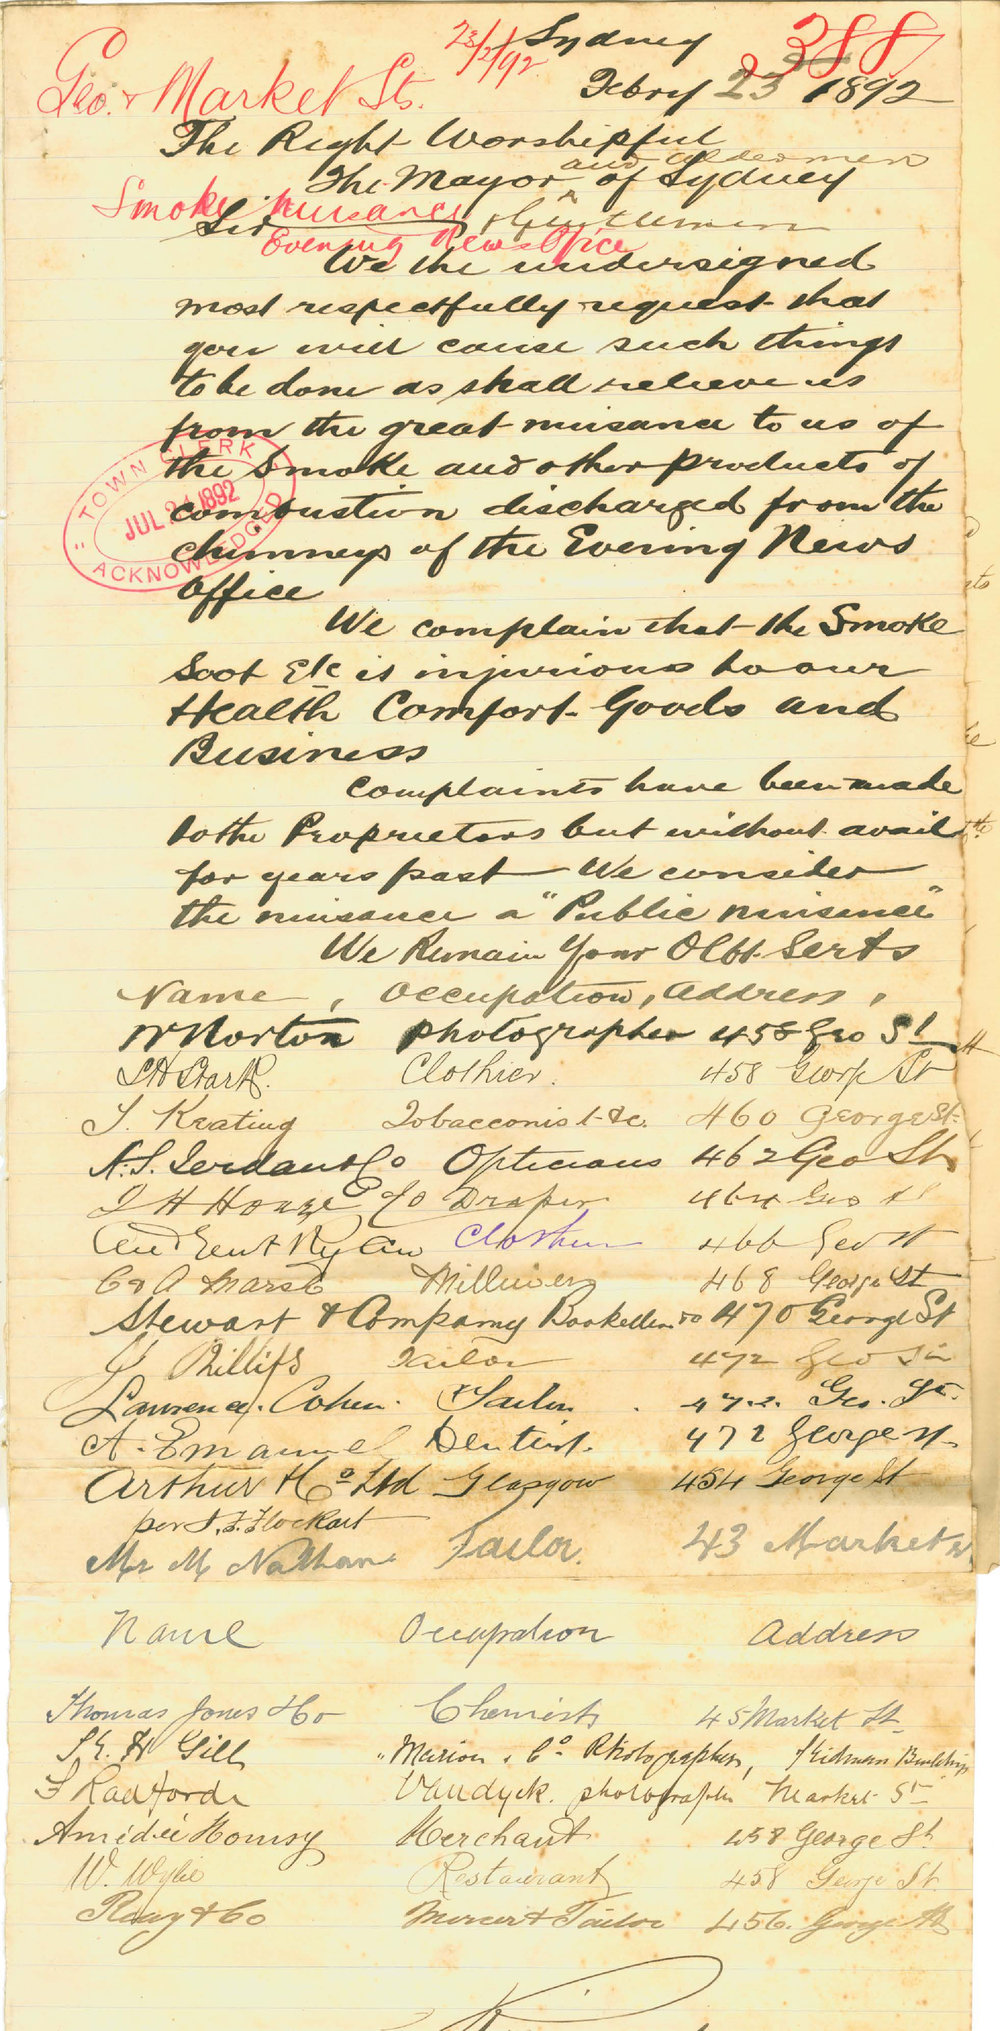 23/2/92
388
Sydney
Geo. & Market St.
Febry 23 1892
The Right Worshipful
and Aldermen
The Mayor ^ of Sydney
Smoke nuisance
Sir & Gentlemen
Evening News Office
We the undersigned
most respectfully request that
you will cause such things
to be done as shall relieve us
from the great nuisance to us of
the Smoke and other products of
combustion discharged from the
chimneys of the Evening News
Office
TOWN CLERK
JUL 21 1892
ACKNOWLEDGED
We complain that the Smoke
Soot Etc is injurious to our
Health Comfort Goods and
Business
Complaints have been made
to the Proprietors but without avail
for years past We consider
the nuisance a "Public nuisance"
We Remain Your Obt. Serts
Name, Occupation, Address,
W Norton photographer 458 Geo St
S H Stark. Clothier. 458 George St
J. Keating Tobacconist &c. 460 George St.
A. S. & Co Opticians 462 Geo St
J H & Co Draper 464 Geo St
Clothier 466 Geo St
C & A Marsh Millinery 468 George St
Stewart & Company Booksellers 470 George St
J Phillips Tailor 472 Geo St
Lawrence Cohen. Tailor. 472. Geo. St.
A. Emanuel Dentist. 472 George St
Arthur & Co Ltd Glasgow 454 George St
per J. F. Flockart
Mr M Nathan Tailor. 43 Market St
Name Occupation Address
Thomas Jones & Co Chemists 45 Market St
H Gill Marion & Co Photographers, Buildings
Radford Vandyck photographer Market St
Amédée Homsy Merchant 458 George St
W. Wylie Restaurant 458 George St.
& Co Mercer & Tailor 456. George St